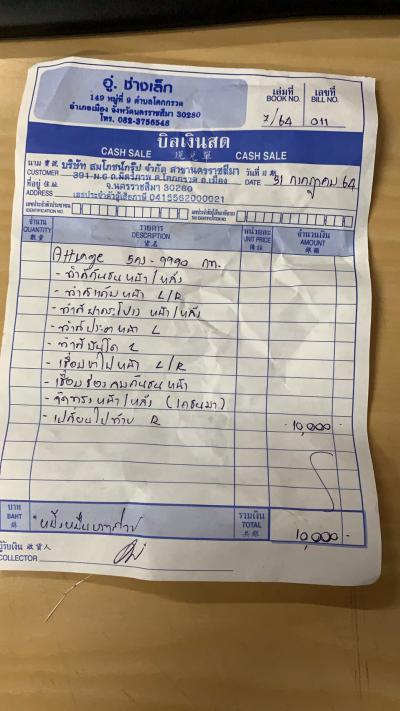 อู่. ช่างเล็ก
149 หมู่ที่ 9 ตำบลโคกกรวด
อำเภอเมือง จังหวัดนครราชสีมา 30280
โทร. 082-3756548
เล่มที่ เลขที่
BOOK NO. BILL NO.
7/64 011
บิลเงินสด
CASH SALE 現兌單 CASH SALE
นาม 寶號 บริษัท สมโภชน์กรุ๊ป จำกัด สาขานครราชสีมา วันที่
CUSTOMER 391 ม.6 ถ.มิตรภาพ ต.โคกกรวด อ.เมือง DATE 31 กรกฎาคม 64
ที่อยู่ 住址 จ.นครราชสีมา 30280
ADDRESS เลขประจำตัวผู้เสียภาษี 0415562000021
IDENTIFICATION NO.
จำนวน รายการ หน่วยละ จำนวนเงิน
QUANTITY DESCRIPTION UNIT PRICE AMOUNT
數量 貨名
Attrage 5กร-9990 กท.
- ทำสีกันชน หน้า/หลัง
- ทำสีแก้มหน้า L/R
- ทำสีฝากระโปรง หน้า/หลัง
- ทำสีประตูหน้า L
- เชื่อมขาไฟหน้า L/R
- เชื่อมช่องคมกันชน หน้า
- เปลี่ยนไฟท้าย R 10,000 -
บาท รวมเงิน
BAHT *หนึ่งหมื่นบาทถ้วน TOTAL 10,000 -
ผู้รับเงิน 收貨人
COLLECTOR